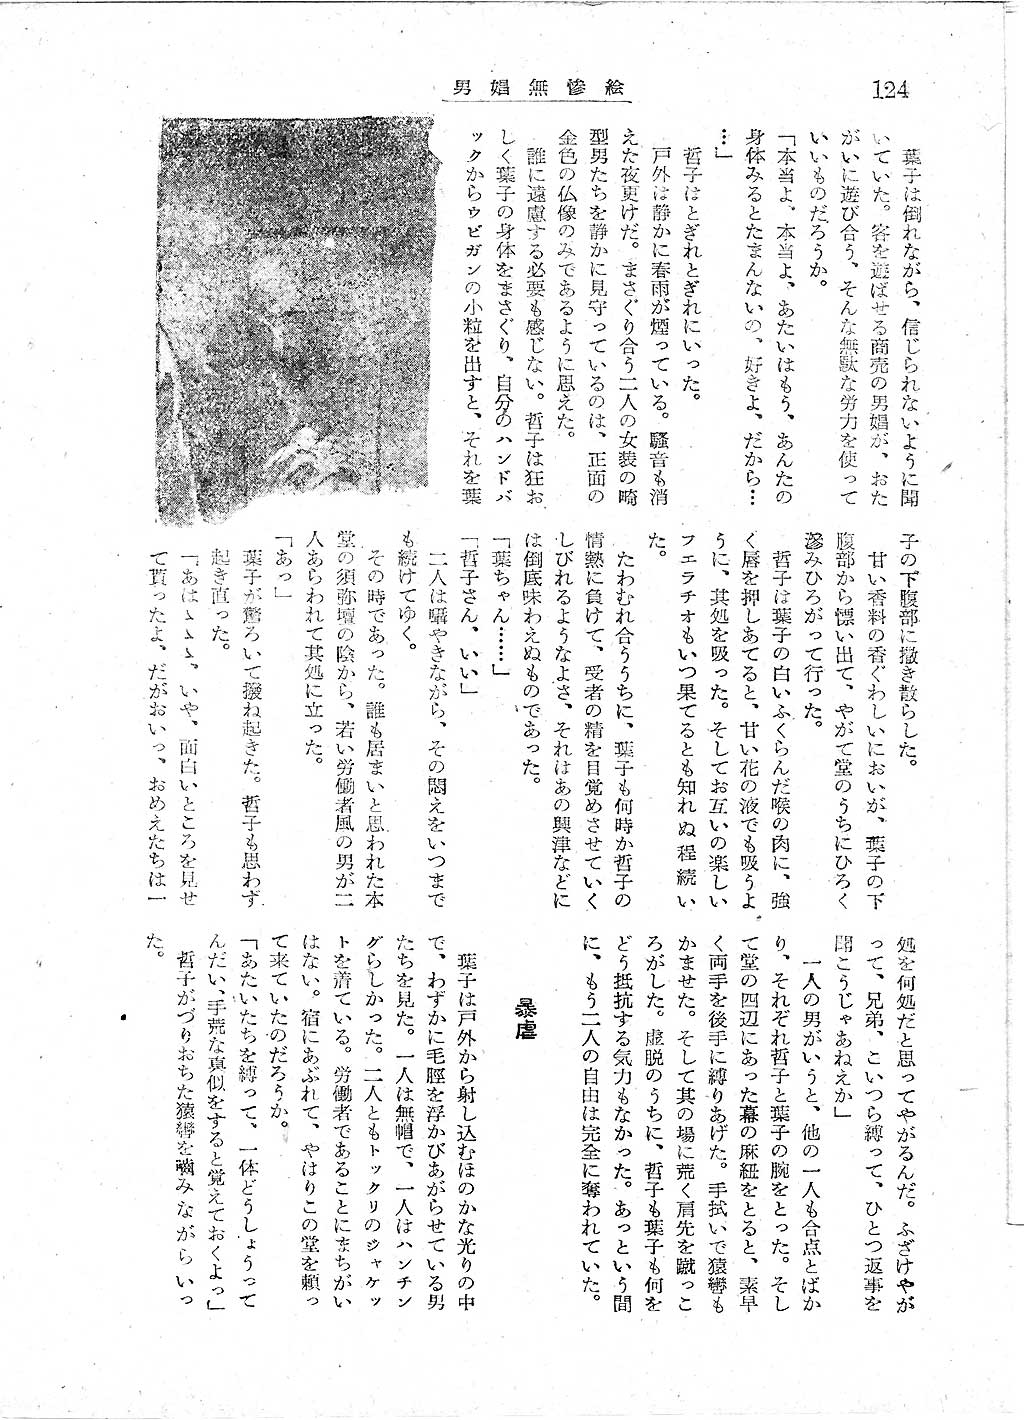 男娼無惨絵
124
葉子は倒れながら、信じられないように聞
いていた。客を遊ばせる商売の男娼が、おた
がいに遊び合う、そんな無駄な労力を使って
いいものだろうか。
「本当よ、本当よ、あたいはもう、あんたの
身体みるとたまんないの、好きよ、だから…
…」
哲子はとぎれとぎれにいった。
戸外は静かに春雨が煙っている。騒音も消
えた夜更けだ。まさぐり合う二人の女装の畸
型男たちを静かに見守っているのは、正面の
金色の仏像のみであるように思えた。
誰に遠慮する必要も感じない。哲子は狂お
しく葉子の身体をまさぐり、自分のハンドバ
ックからウビガンの小粒を出すと、それを葉
子の下腹部に撒き散らした。
甘い香料の香ぐわしいにおいが、葉子の下
腹部から慓い出て、やがて堂のうちにひろく
滲みひろがって行った。
哲子は葉子の白いふくらんだ喉の肉に、強
く唇を押しあてると、甘い花の液でも吸うよ
うに、其処を吸った。そしてお互いの楽しい
フェラチオもいつ果てるとも知れぬ程続い
た。
たわむれ合ううちに、葉子も何時か哲子の
情熱に負けて、受者の精を目覚めさせていく
しびれるようなよさ、それはあの興津などに
は倒底味わえぬものであった。
「葉ちゃん……」
「哲子さん、いい」
二人は囁やきながら、その悶えをいつまで
も続けてゆく。
その時であった。誰も居まいと思われた本
堂の須弥壇の陰から、若い労働者風の男が二
人あらわれて其処に立った。
「あっ」
葉子が驚ろいて撥ね起きた。哲子も思わず
起き直った。
「あはゝゝゝ、いや、面白いところを見せ
て貰ったよ、だがおいっ、おめえたちは一
処を何処だと思ってやがるんだ。ふざけやが
って、兄弟、こいつら縛って、ひとつ返事を
聞こうじゃあねえか」
一人の男がいうと、他の一人も合点とばか
り、それぞれ哲子と葉子の腕をとった。そし
て堂の四辺にあった幕の麻紐をとると、素早
く両手を後手に縛りあげた。手拭いで猿轡も
かませた。そして其の場に荒く肩先を蹴っこ
ろがした。虚脱のうちに、哲子も葉子も何を
どう抵抗する気力もなかった。あっという間
に、もう二人の自由は完全に奪われていた。
暴虐
葉子は戸外から射し込むほのかな光りの中
で、わずかに毛脛を浮かびあがらせている男
たちを見た。一人は無帽で、一人はハンチン
グらしかった。二人ともトックリのジャケッ
トを着ている。労働者であることにまちがい
はない。宿にあぶれて、やはりこの堂を頼っ
て来ていたのだろうか。
「あたいたちを縛って、一体どうしょうって
んだい、手荒な真似をすると覚えておくよっ」
哲子がづりおちた猿轡を噛みながらいっ
た。